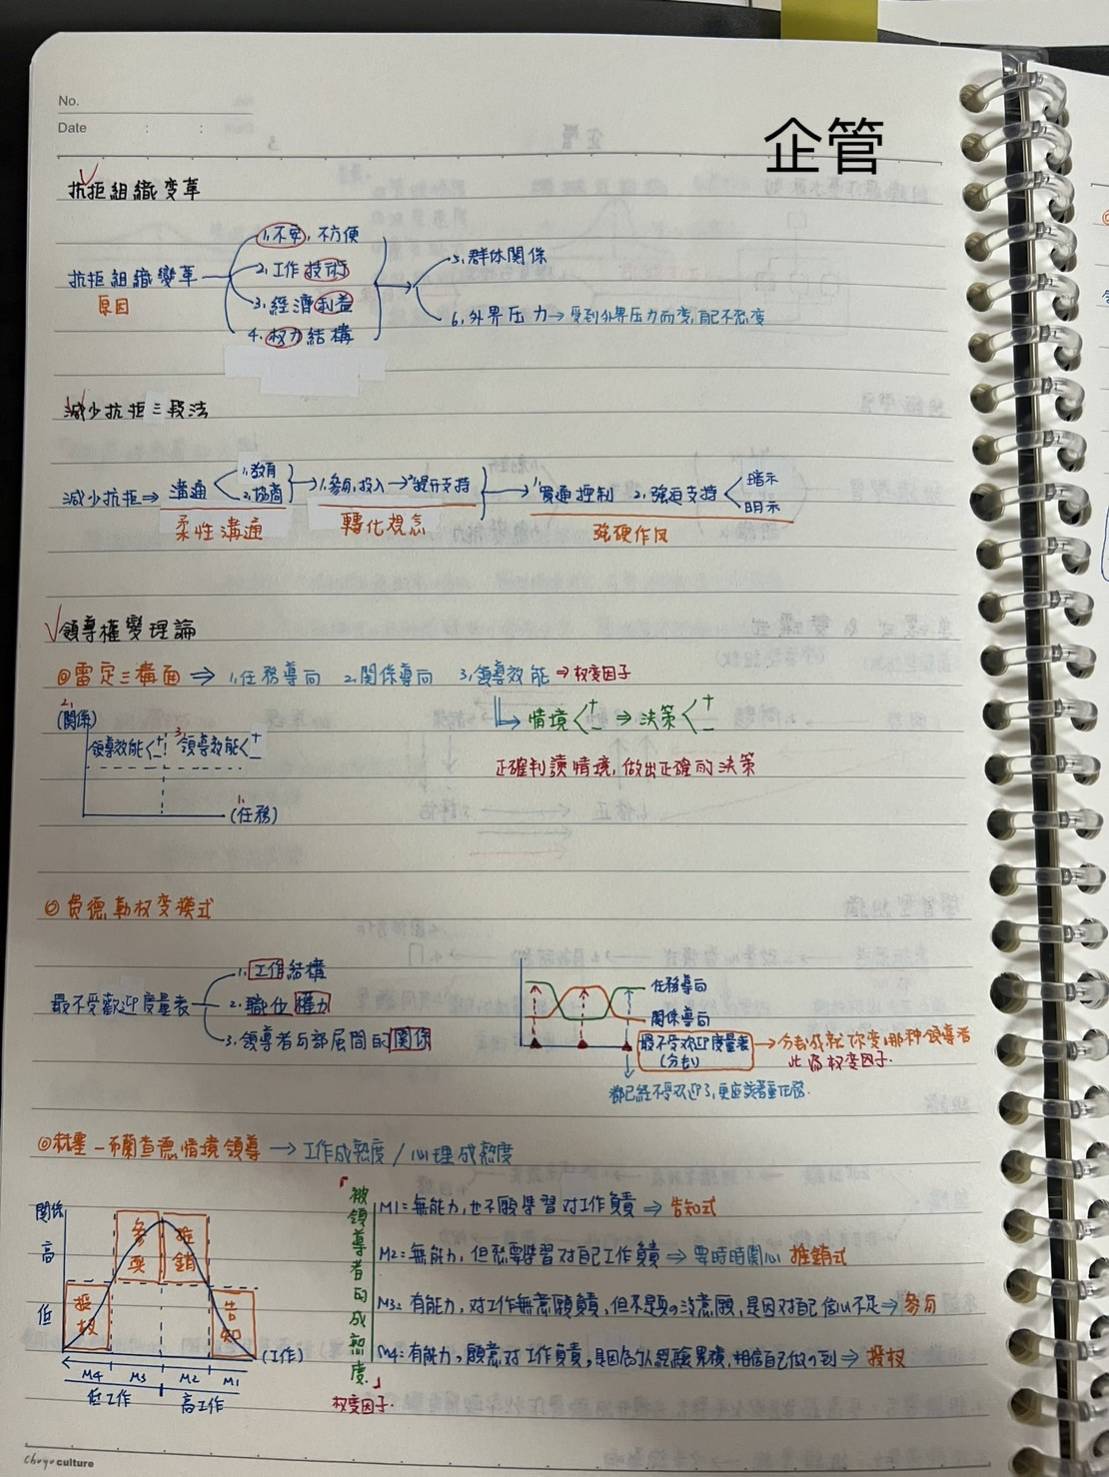 No.
Date : :
企管
抗拒組織変革
抗拒組織變革
原因
1.不安，不方便
2.工作技術
3.經濟利益
4.权力結構
5.群体関係
6.外界压力→受到外界压力而变,自己不想变
減少抗拒三段法
減少抗拒⇒溝通<1.教育
2.協商
→1.參与,投入→2.提升支持
→1.實通控制 2.強迫支持<暗示
明示
柔性溝通
轉化观念
強硬作风
領導權變理論
◎雷定三構面⇒1.任務導向 2.関係導向 3.領導效能⇒权变因子
情境<+
-
⇒決策<+
-
正確判讀情境，做出正確的決策
2.
(関係)
領導效能<+
-
3.領導效能<+
-
1.
(任務)
◎費德勒权变模式
最不受歡迎度量表
1.工作結構
2.職位權力
3.領導者与部屬間的関係
任務導向
関係導向
最不受欢迎度量表
(分數)
→分數成就你变哪种領導者
此為权变因子.
都已經不受欢迎了,更應該着重任務.
◎赫塞－布蘭查德情境領導→工作成熟度/心理成熟度
関係
高
低
參與
推銷
授权
告知
(工作)
M4 M3 M2 M1
低工作 高工作
「被領導者的成熟度」
权变因子.
M1=無能力,也不願學習對工作負責⇒告知式
M2=無能力,但想要學習對自己工作負責⇒要時時関心 推銷式
M3=有能力,對工作無意願負責,但不是真的沒意願,是因對自己信心不足⇒參与
M4=有能力,願意對工作負責,是因信心經驗累積,相信自己做的到⇒授权
Chuyu culture